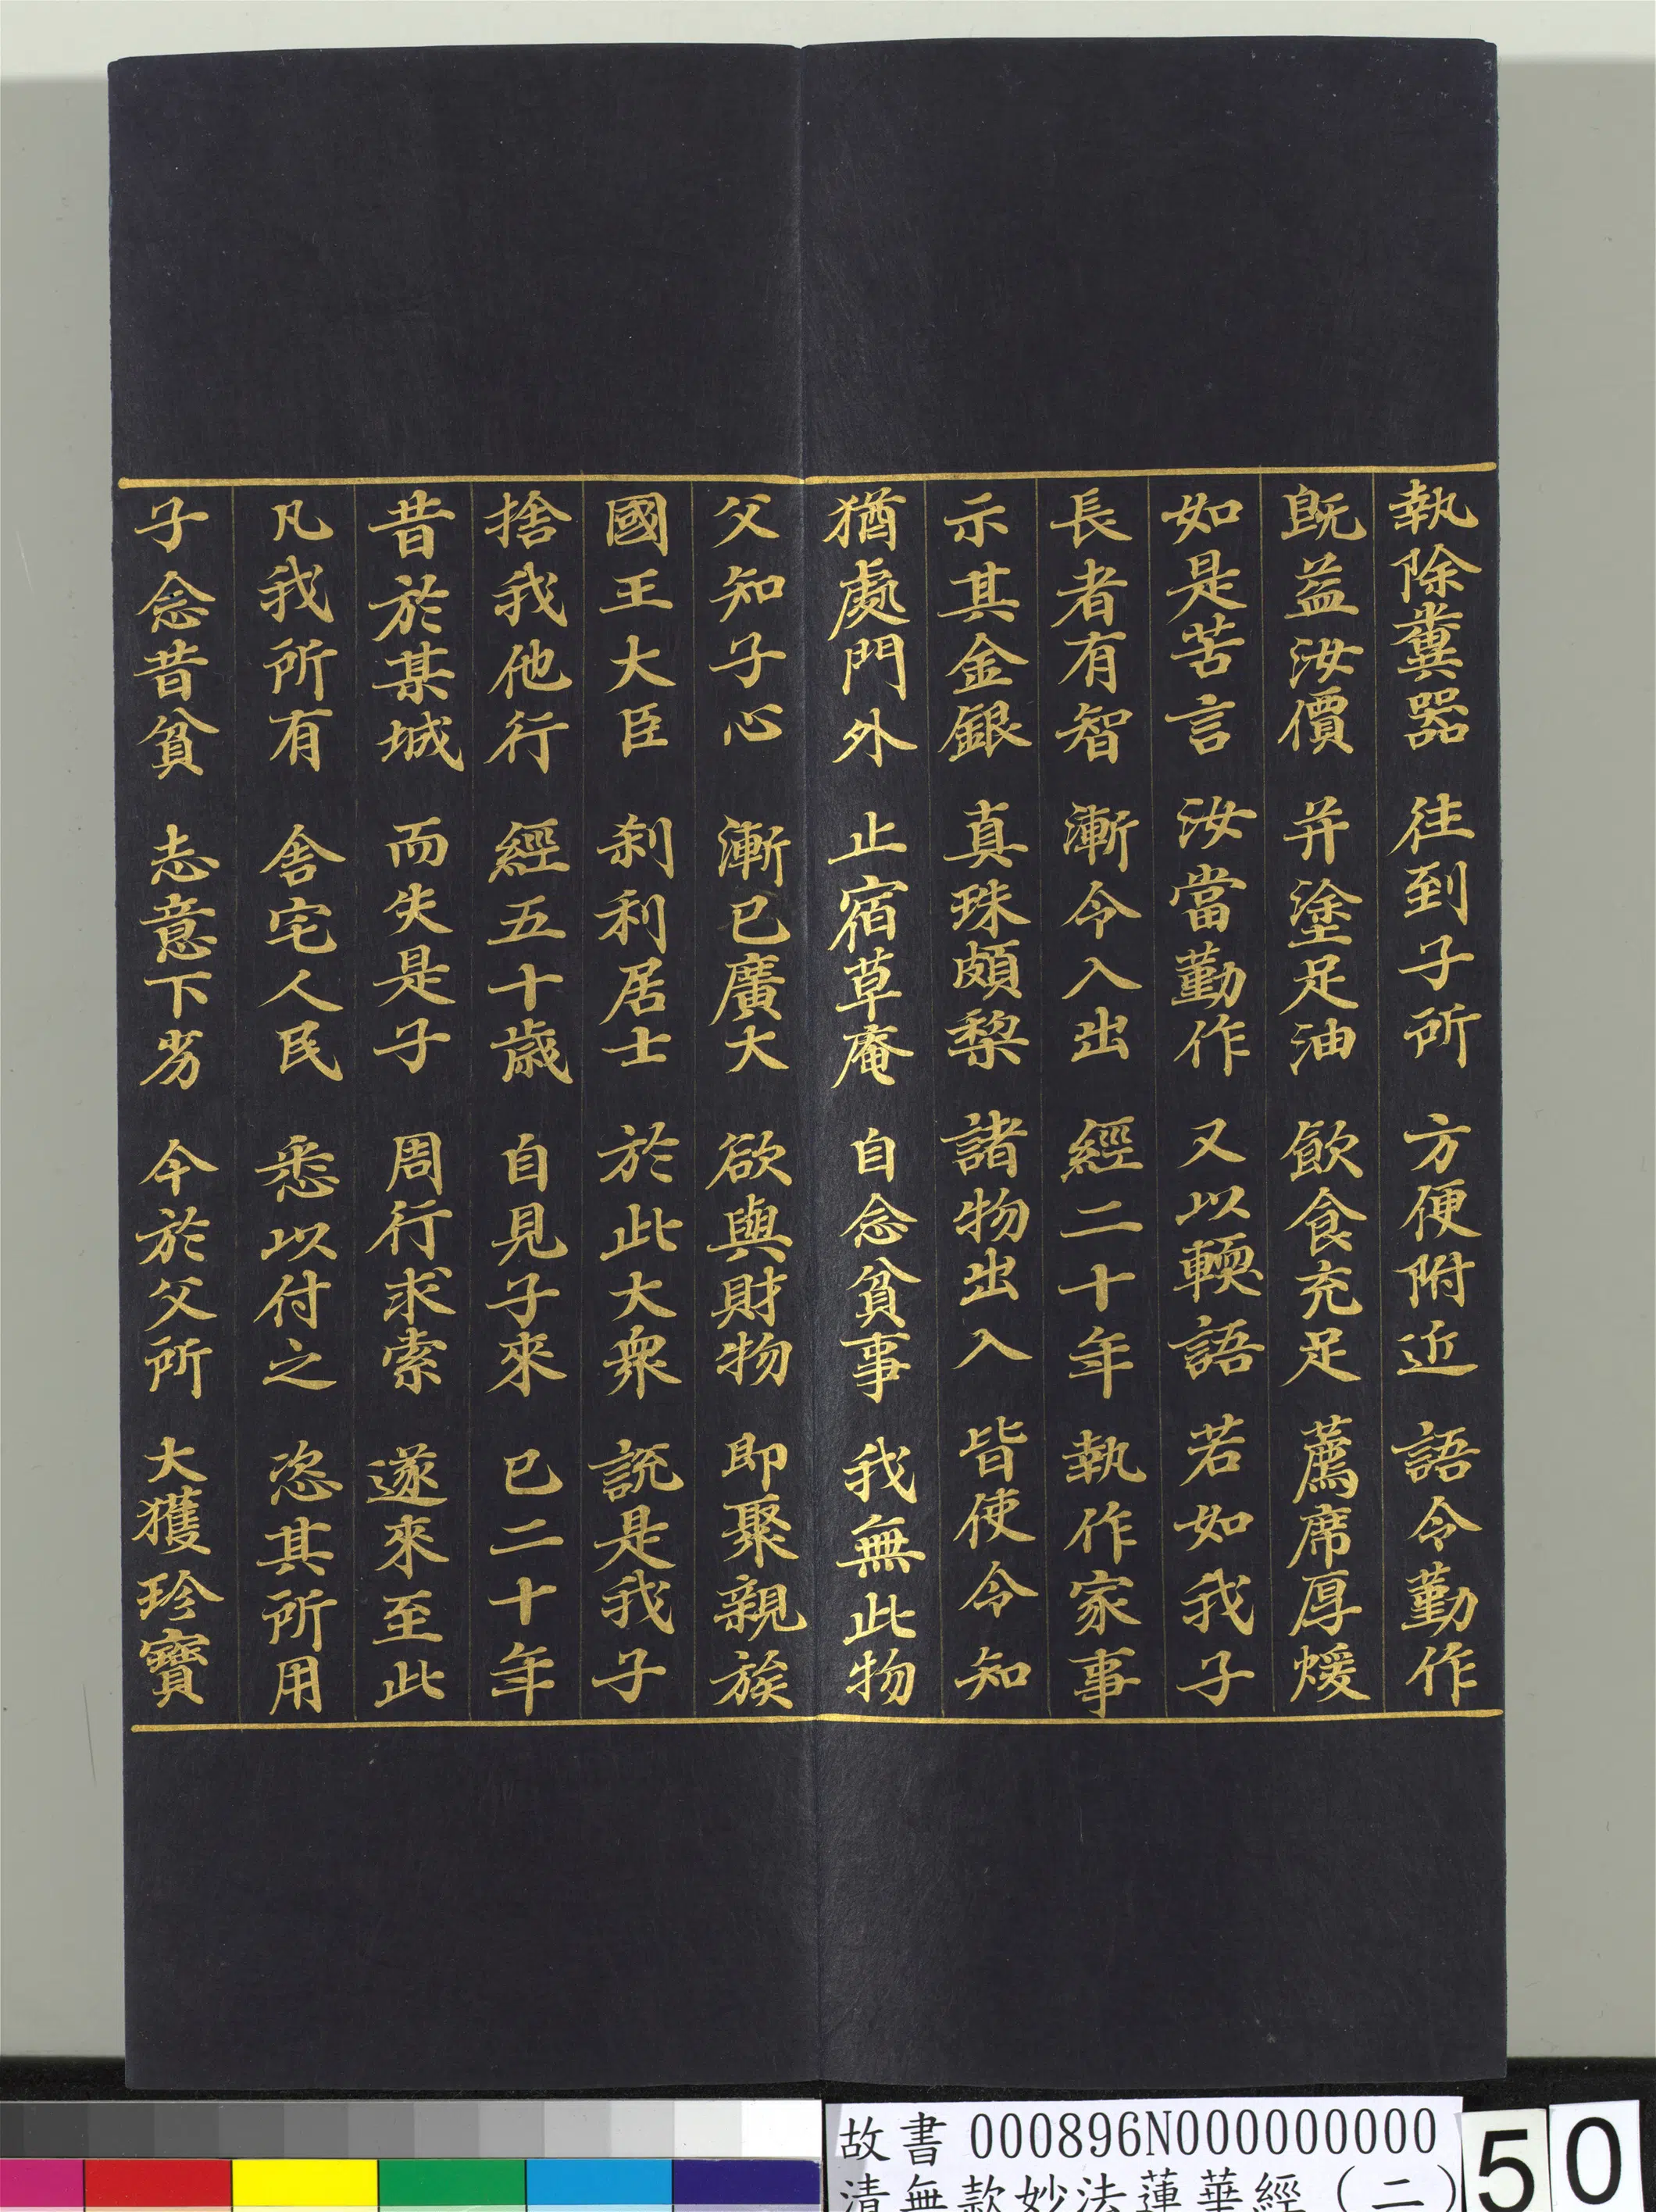 執除糞器 往到子所 方便附近 語令勤作
既益汝價 并塗足油 飲食充足 薦席厚煖
如是苦言 汝當勤作 又以輭語 若如我子
長者有智 漸令入出 經二十年 執作家事
示其金銀 真珠頗棃 諸物出入 皆使令知
猶處門外 止宿草庵 自念貧事 我無此物
父知子心 漸已廣大 欲與財物 即聚親族
國王大臣 剎利居士 於此大眾 說是我子
捨我他行 經五十歲 自見子來 已二十年
昔於某城 而失是子 周行求索 遂來至此
凡我所有 舍宅人民 悉以付之 恣其所用
子念昔貧 志意下劣 今於父所 大獲珍寶
故書 000896N000000000
清無款妙法蓮華經（二）
50